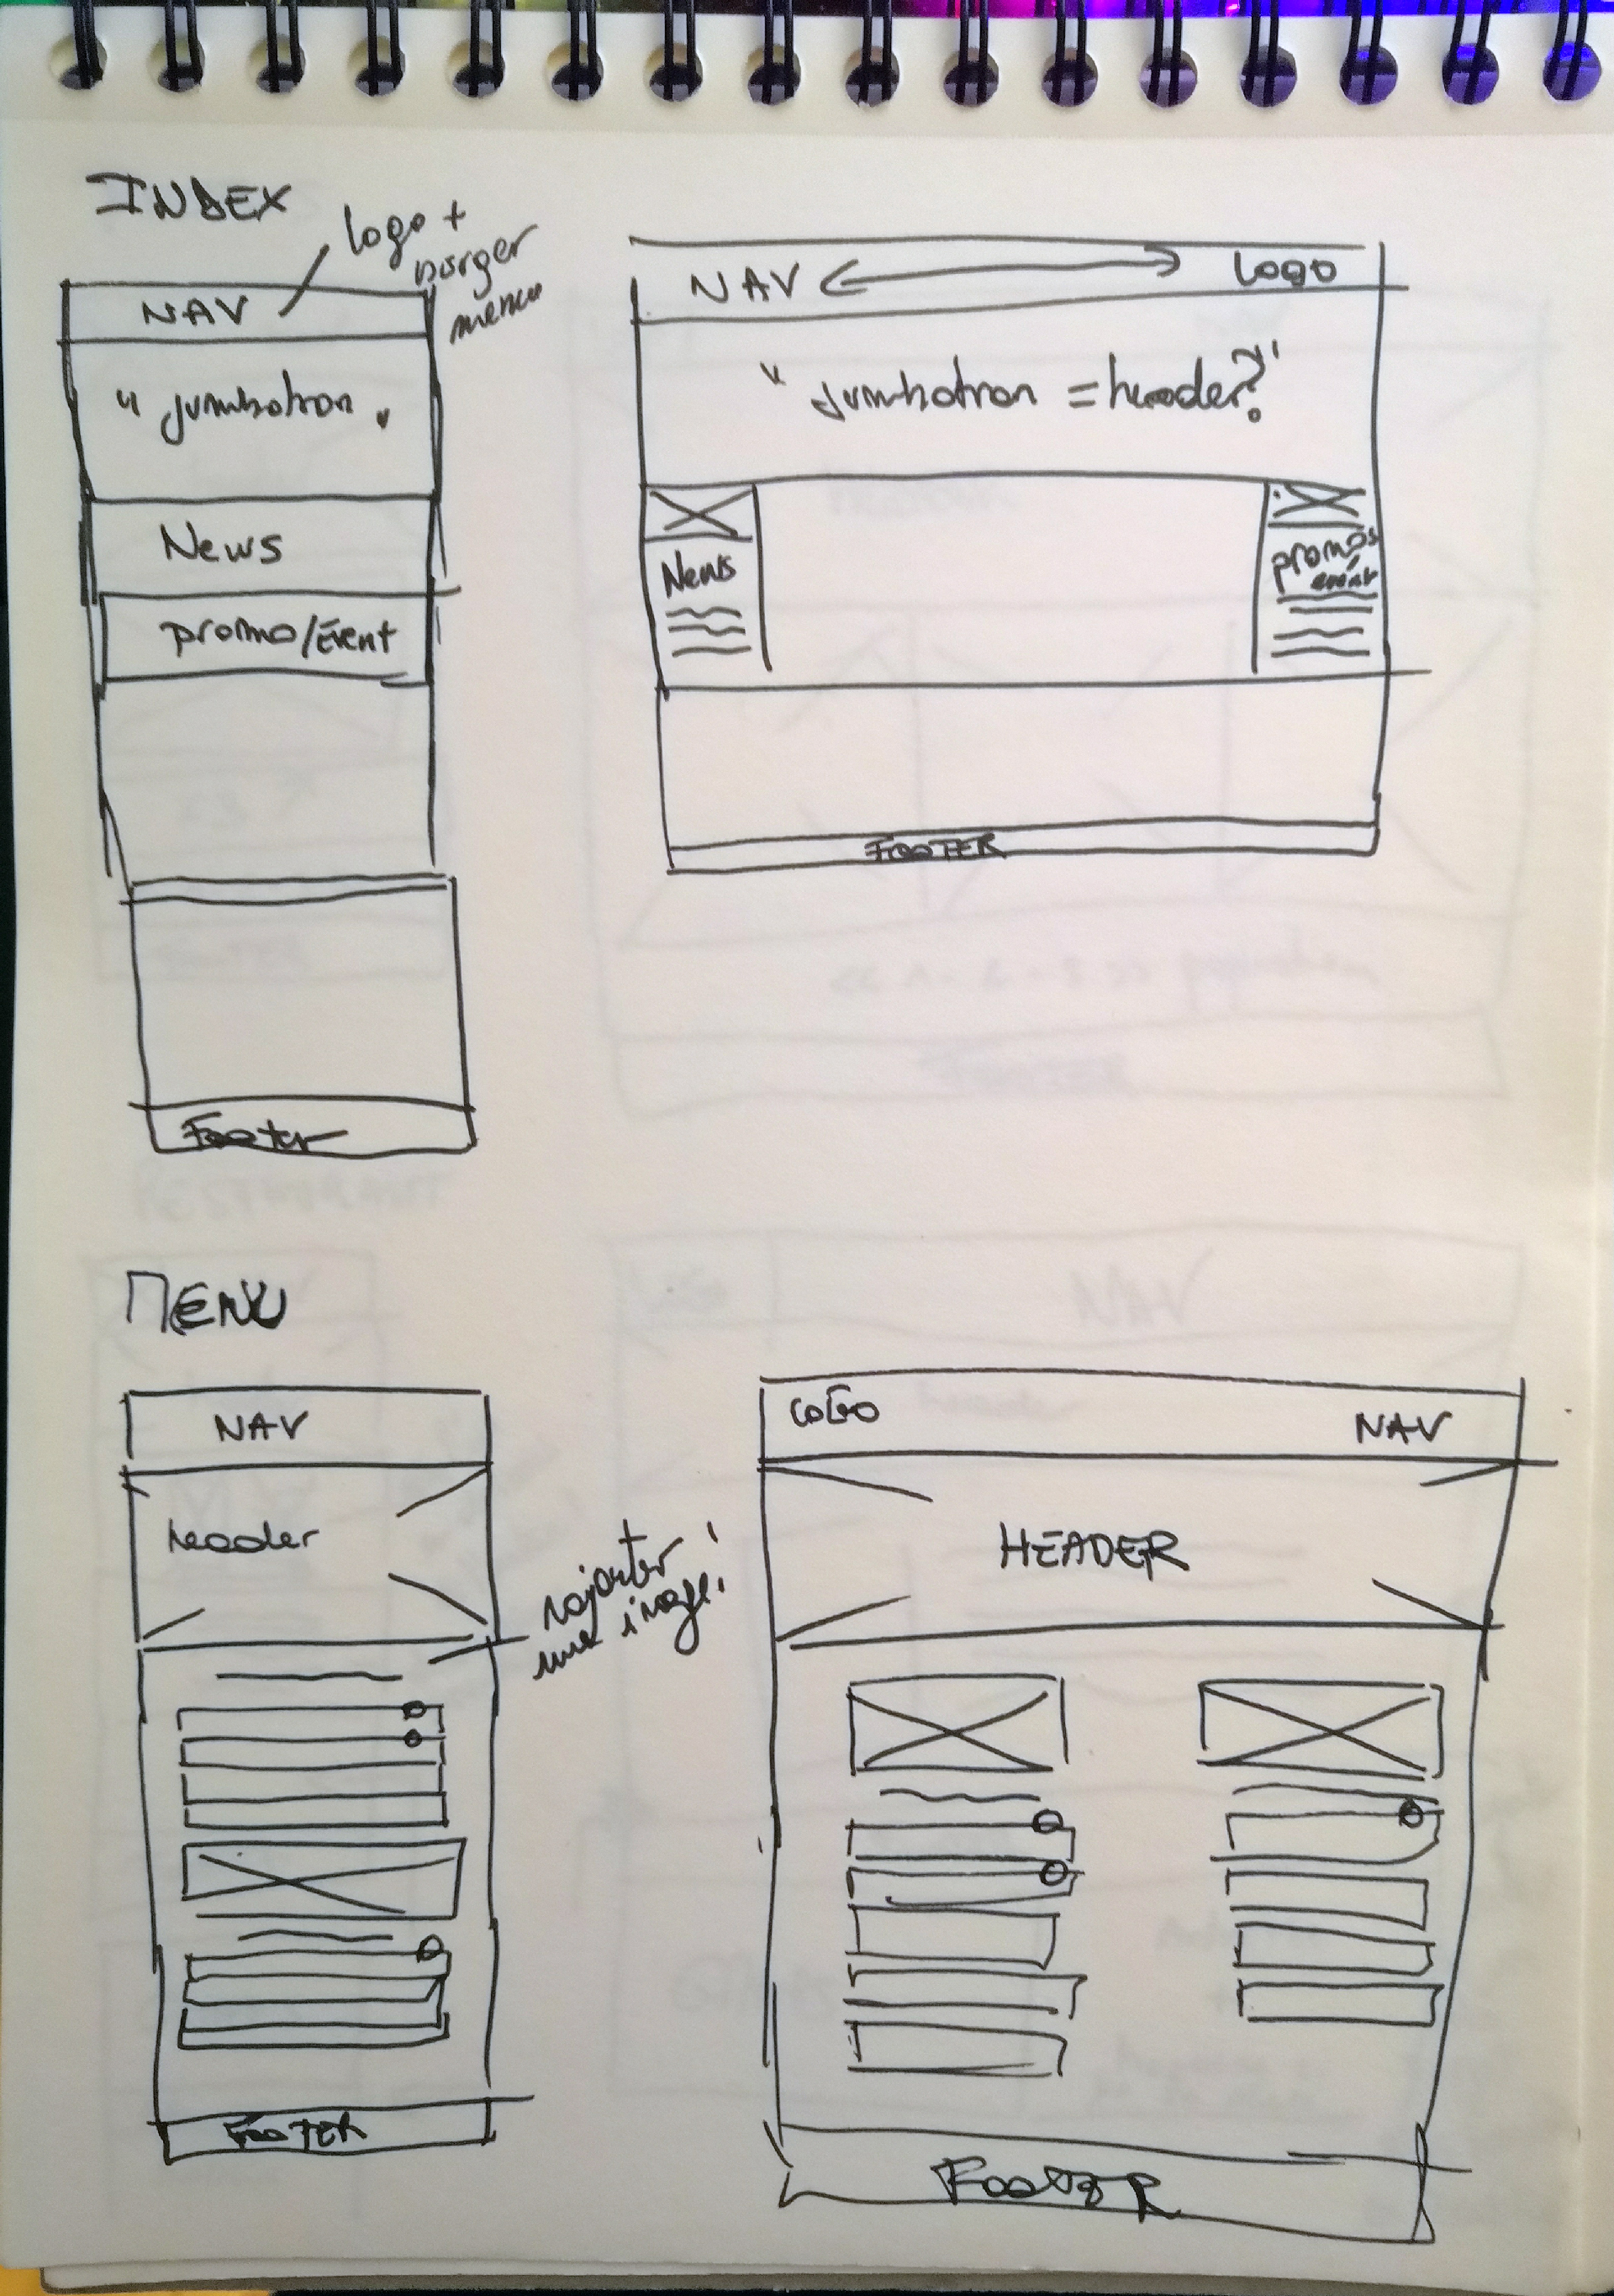 INDEX
logo +
burger
menu
NAV
" jumbotron "
News
promo/Event
Footer
NAV
LOGO
" jumbotron = header? "
News
promos
event
FOOTER
MENU
NAV
header
rajouter
une image!
FOOTER
LOGO
NAV
HEADER
FOOTER